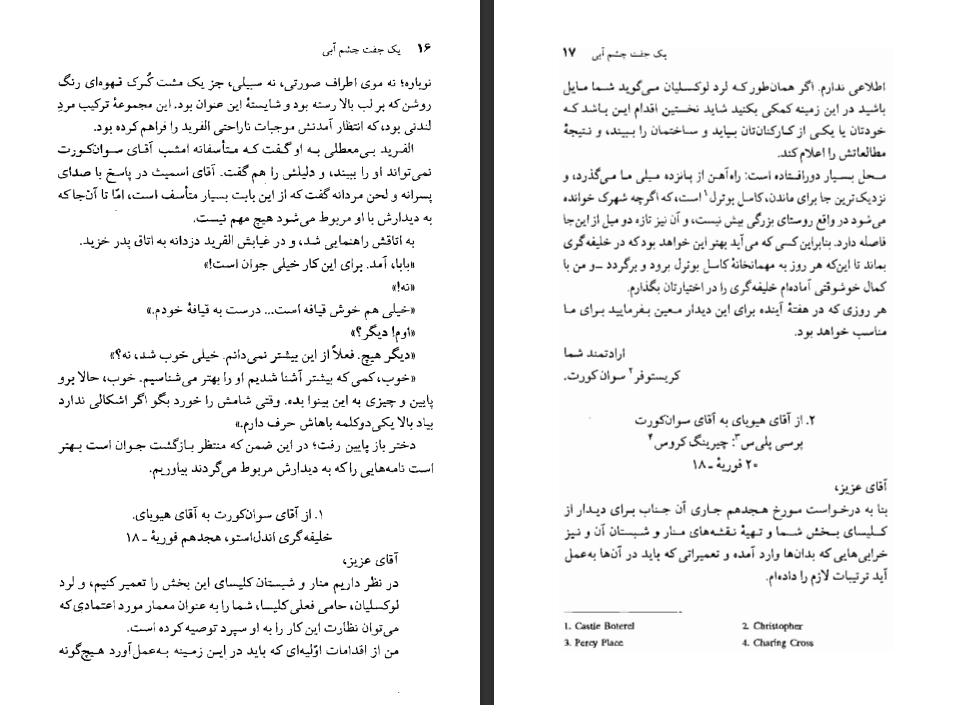 ۱۶ یک جفت چشم آبی
نوباره؛ نه موی اطراف صورتی، نه سبیلی، جز یک مشت کُرک قهوه‌ای رنگ
روشن که بر لب بالا رسته بود و شایستهٔ این عنوان بود. این مجموعهٔ ترکیب مردِ
لندنی بود، که انتظار آمدنش موجبات ناراحتی الفرید را فراهم کرده بود.
الفرید بی‌معطلی به او گفت که متأسفانه امشب آقای سوان‌کورت
نمی‌تواند او را ببیند، و دلیلش را هم گفت. آقای اسمیث در پاسخ با صدای
پسرانه و لحن مردانه گفت که از این بابت بسیار متأسف است، امّا تا آن‌جا که
به دیدارش با او مربوط می‌شود هیچ مهم نیست.
به اتاقش راهنمایی شد، و در غیابش الفرید دزدانه به اتاق پدر خزید.
«بابا، آمد. برای این کار خیلی جوان است!»
«نه!»
«خیلی هم خوش قیافه است... درست به قیافهٔ خودم.»
«اوم! دیگر؟»
«دیگر هیچ. فعلاً از این بیشتر نمی‌دانم. خیلی خوب شد، نه؟»
«خوب، کمی که بیشتر آشنا شدیم او را بهتر می‌شناسیم. خوب، حالا برو
پایین و چیزی به این بینوا بده. وقتی شامش را خورد بگو اگر اشکالی ندارد
بیاد بالا یکی‌دوکلمه باهاش حرف دارم.»
دختر باز پایین رفت؛ در این ضمن که منتظر بازگشت جوان است بهتر
است نامه‌هایی را که به دیدارش مربوط می‌گردند بیاوریم.
۱. از آقای سوان‌کورت به آقای هیوبای.
خلیفه‌گری اندل‌استو، هجدهم فوریهٔ ـ ۱۸
آقای عزیز،
در نظر داریم منار و شبستان کلیسای این بخش را تعمیر کنیم، و لرد
لوکسلیان، حامی فعلی کلیسا، شما را به عنوان معمار مورد اعتمادی که
می‌توان نظارت این کار را به او سپرد توصیه کرده است.
من از اقدامات اوّلیه‌ای که باید در ایـن زمینه به‌عمل‌آورد هیچ‌گونه
۱۷ یک جفت چشم آبی
اطلاعی ندارم. اگر همان‌طور که لرد لوکسلیان می‌گوید شـما مـایل
باشید در این زمینه کمکی بکنید شاید نخستین اقدام ایـن بـاشد کـه
خودتان یا یکی از کارکنان‌تان بـیاید و سـاختمان را بـبیند، و نـتیجهٔ
مطالعاتش را اعلام کند.
محل بسیار دورافتاده است: راه‌آهن از پانزده میلی ما می‌گذرد، و
نزدیک‌ترین جا برای ماندن، کاسل بوترل۱ است، که اگرچه شهرک خوانده
می‌شود در واقع روستای بزرگی بیش نیست، و آن نیز تازه دو میل از این‌جا
فاصله دارد. بنابراین کسی که می‌آید بهتر این خواهد بود که در خلیفه‌گری
بماند تا این‌که هر روز به مهمانخانهٔ کاسل بوترل برود و برگردد ـ‌و من با
کمال خوشوقتی آماده‌ام خلیفه‌گری را در اختیارتان بگذارم.
هر روزی که در هفتهٔ آینده برای این دیدار معین بفرمایید بـرای مـا
مناسب خواهد بود.
ارادتمند شما
کریستوفر۲ سوان کورت.
۲. از آقای هیوبای به آقای سوان‌کورت
پرسی پلی‌س۳: چیرینگ کروس۴
۲۰ فوریهٔ ـ ۱۸
آقای عزیز،
بنا به درخواست مورخ هجدهم جاری آن جـناب بـرای دیـدار از
کـلیسای بـخش شـما و تـهیهٔ نـقشه‌های منار و شبستان آن و نـیز
خرابی‌هایی که بدان‌ها وارد آمده و تعمیراتی که باید در آن‌ها به‌عمل
آید ترتیبات لازم را داده‌ام.
1. Castle Boterel 2. Christopher
3. Percy Place 4. Charing Cross